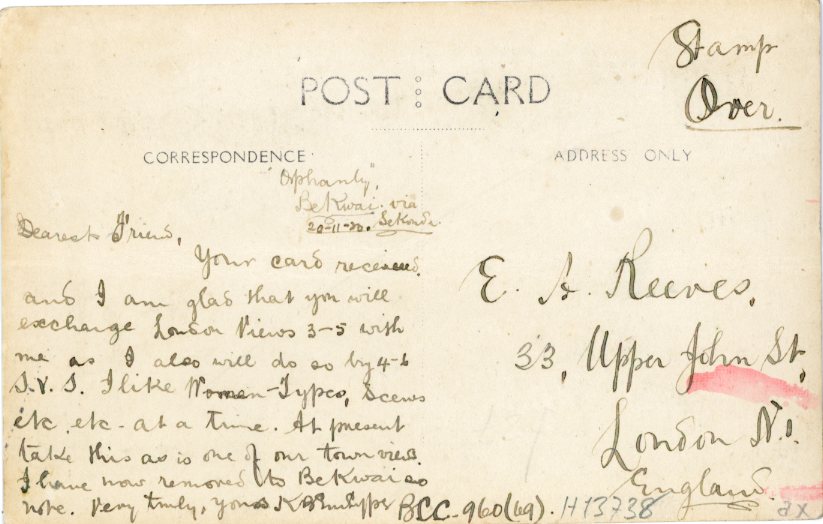 Stamp
Over.
POST CARD
CORRESPONDENCE
ADDRESS ONLY
"Orphanly",
BeKwai via
20-11-20. SeKondi.
Dearest Friend,
Your card received
and I am glad that you will
exchange London Views 3-5 with
me as I also will do so by 4-6
S.V.S. I like Women-Types, Scenes
etc etc - at a time. At present
take this as is one of our town view.
I have now removed to BeKwai so
note. Very truly, yours
E. A. Reeves,
33, Upper John St,
London N.1.
England.
BCC-960(69). H13738
ax